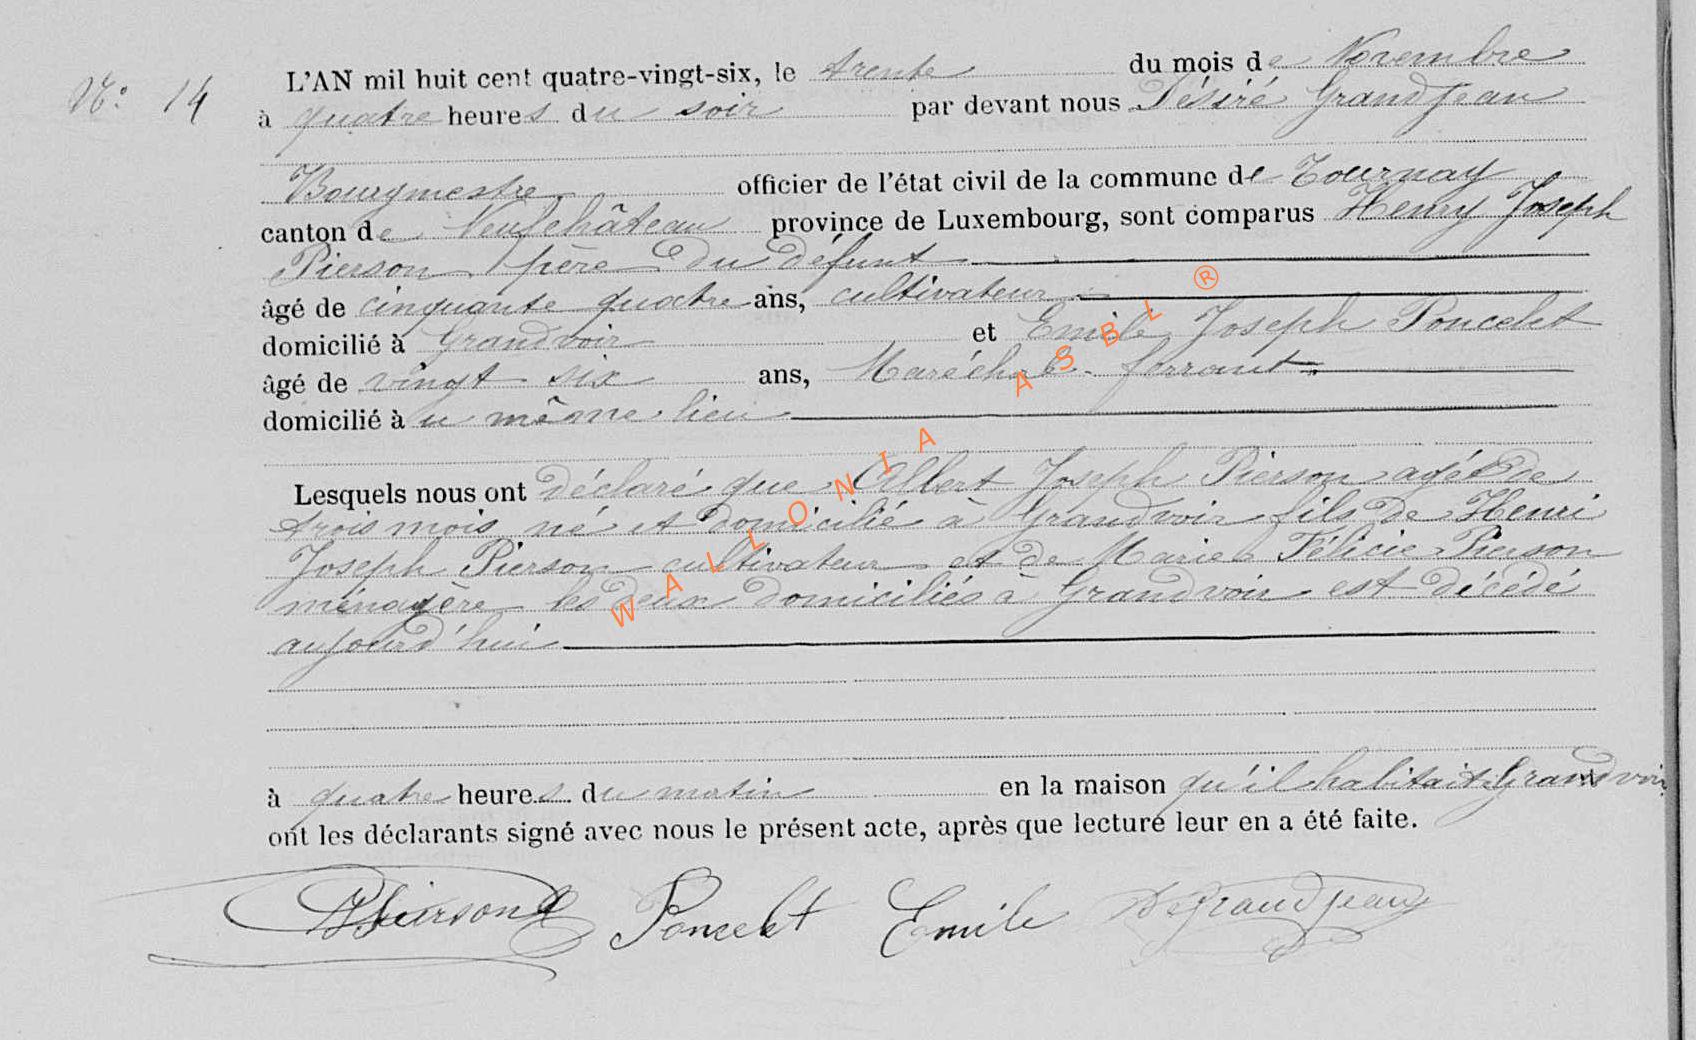 N°: 14
L'AN mil huit cent quatre-vingt-six, le trente du mois de Novembre
à quatre heures du soir par devant nous Désiré Grandjean
Bourgmestre officier de l'état civil de la commune de Tournay
canton de Neufchâteau province de Luxembourg, sont comparus Henry Joseph
Pierson père du défunt
âgé de cinquante quatre ans, cultivateur
domicilié à Grandvoir et Emile Joseph Poncelet
âgé de vingt six ans, Maréchal ferrant
domicilié à u même lieu
Lesquels nous ont déclaré que Albert Joseph Pierson agé de
trois mois né et domicilié à Grandvoir fils de Henri
Joseph Pierson cultivateur et de Marie Félicie Pierson
ménagère les deux domiciliés à Grandvoir est décédé
aujourd'hui
à quatre heures du matin en la maison qu'il habitait Grandvoir
ont les déclarants signé avec nous le présent acte, après que lecture leur en a été faite.
Pierson Poncelet Emile D Grandjean
WALLONIA ASBL ®